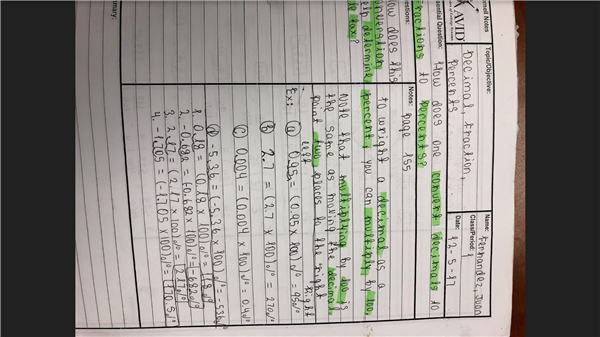 Cornell Notes
AVID
Topic/Objective:
Decimal, Fraction,
Percents
Name: Fernandez, Juan
Class/Period: 1
Date: 12-5-17
Essential Question: How does one convert decimals to
fractions to percents?
Questions:
How does this
conversation
help determine
to tax?
Notes: page 155
To wright a decimal as a
percent, you can multiply by 100.
Note that multiplying by 100 is
the same as moving the decimal
point two places to the right
left right
Ex: (a) 0.45 = (0.45 x 100)% = 45%
(b) 2.7 = (2.7 x 100)% = 270%
(c) 0.004 = (0.004 x 100)% = 0.4%
(d) -5.36 = (-5.36 x 100)% = -536%
1. 0.18 = (0.18 x 100)% = 18%
2. -0.682 = (-0.682 x 100)% = -68.2%
3. 2.17 = (2.17 x 100)% = 217%
4. -1.705 = (-1.705 x 100)% = (-170.5)%